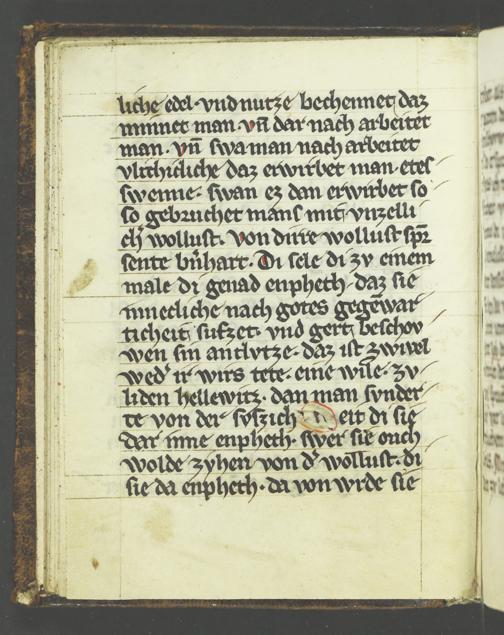 liche edel · vnd nutze bechennet daz
minnet man · vn̄ dar nach arbeitet
man · vn̄ swa man nach arbeitet
vlithicliche daz erwirbet man · etes
swenne · swan ez dan erwirbet so
so gebruchet mans mit vnzelli
ch' wollust · von dirre wollust spr̄
sente b'nhart · Di sele di zv einem
male di genad enpheth · daz sie
innecliche nach gotes gegēwar
ticheit sufzet · vnd gert beschov
wen sin antlvtze · daz ist zwivel
wed' ir wirs tete · eine wile · zv
liden hellewitz · dan man svnder
te von der svszich eit di sie
dar inne enpheth · swer sie ouch
wolde zyhen von d' wollust · di
sie da enpheth · da von wrde sie